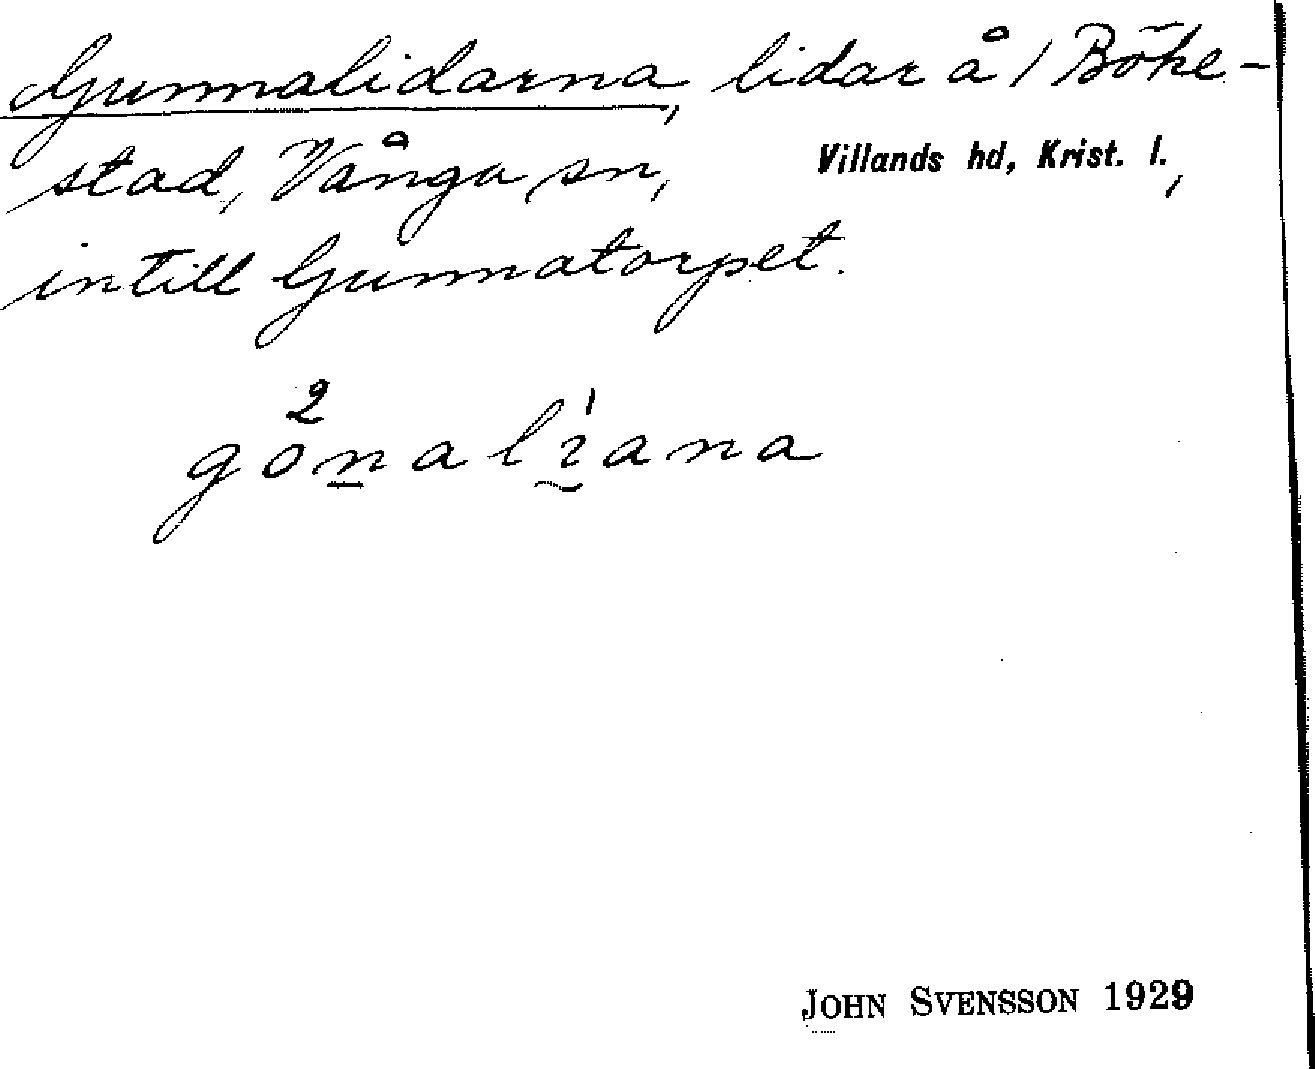 Gunnalidarna, lidar å / Böke-
stad, Vånga sn, Villands hd, Krist. l.,
intill Gunnatorpet.
2
gonaliana
JOHN SVENSSON 1929